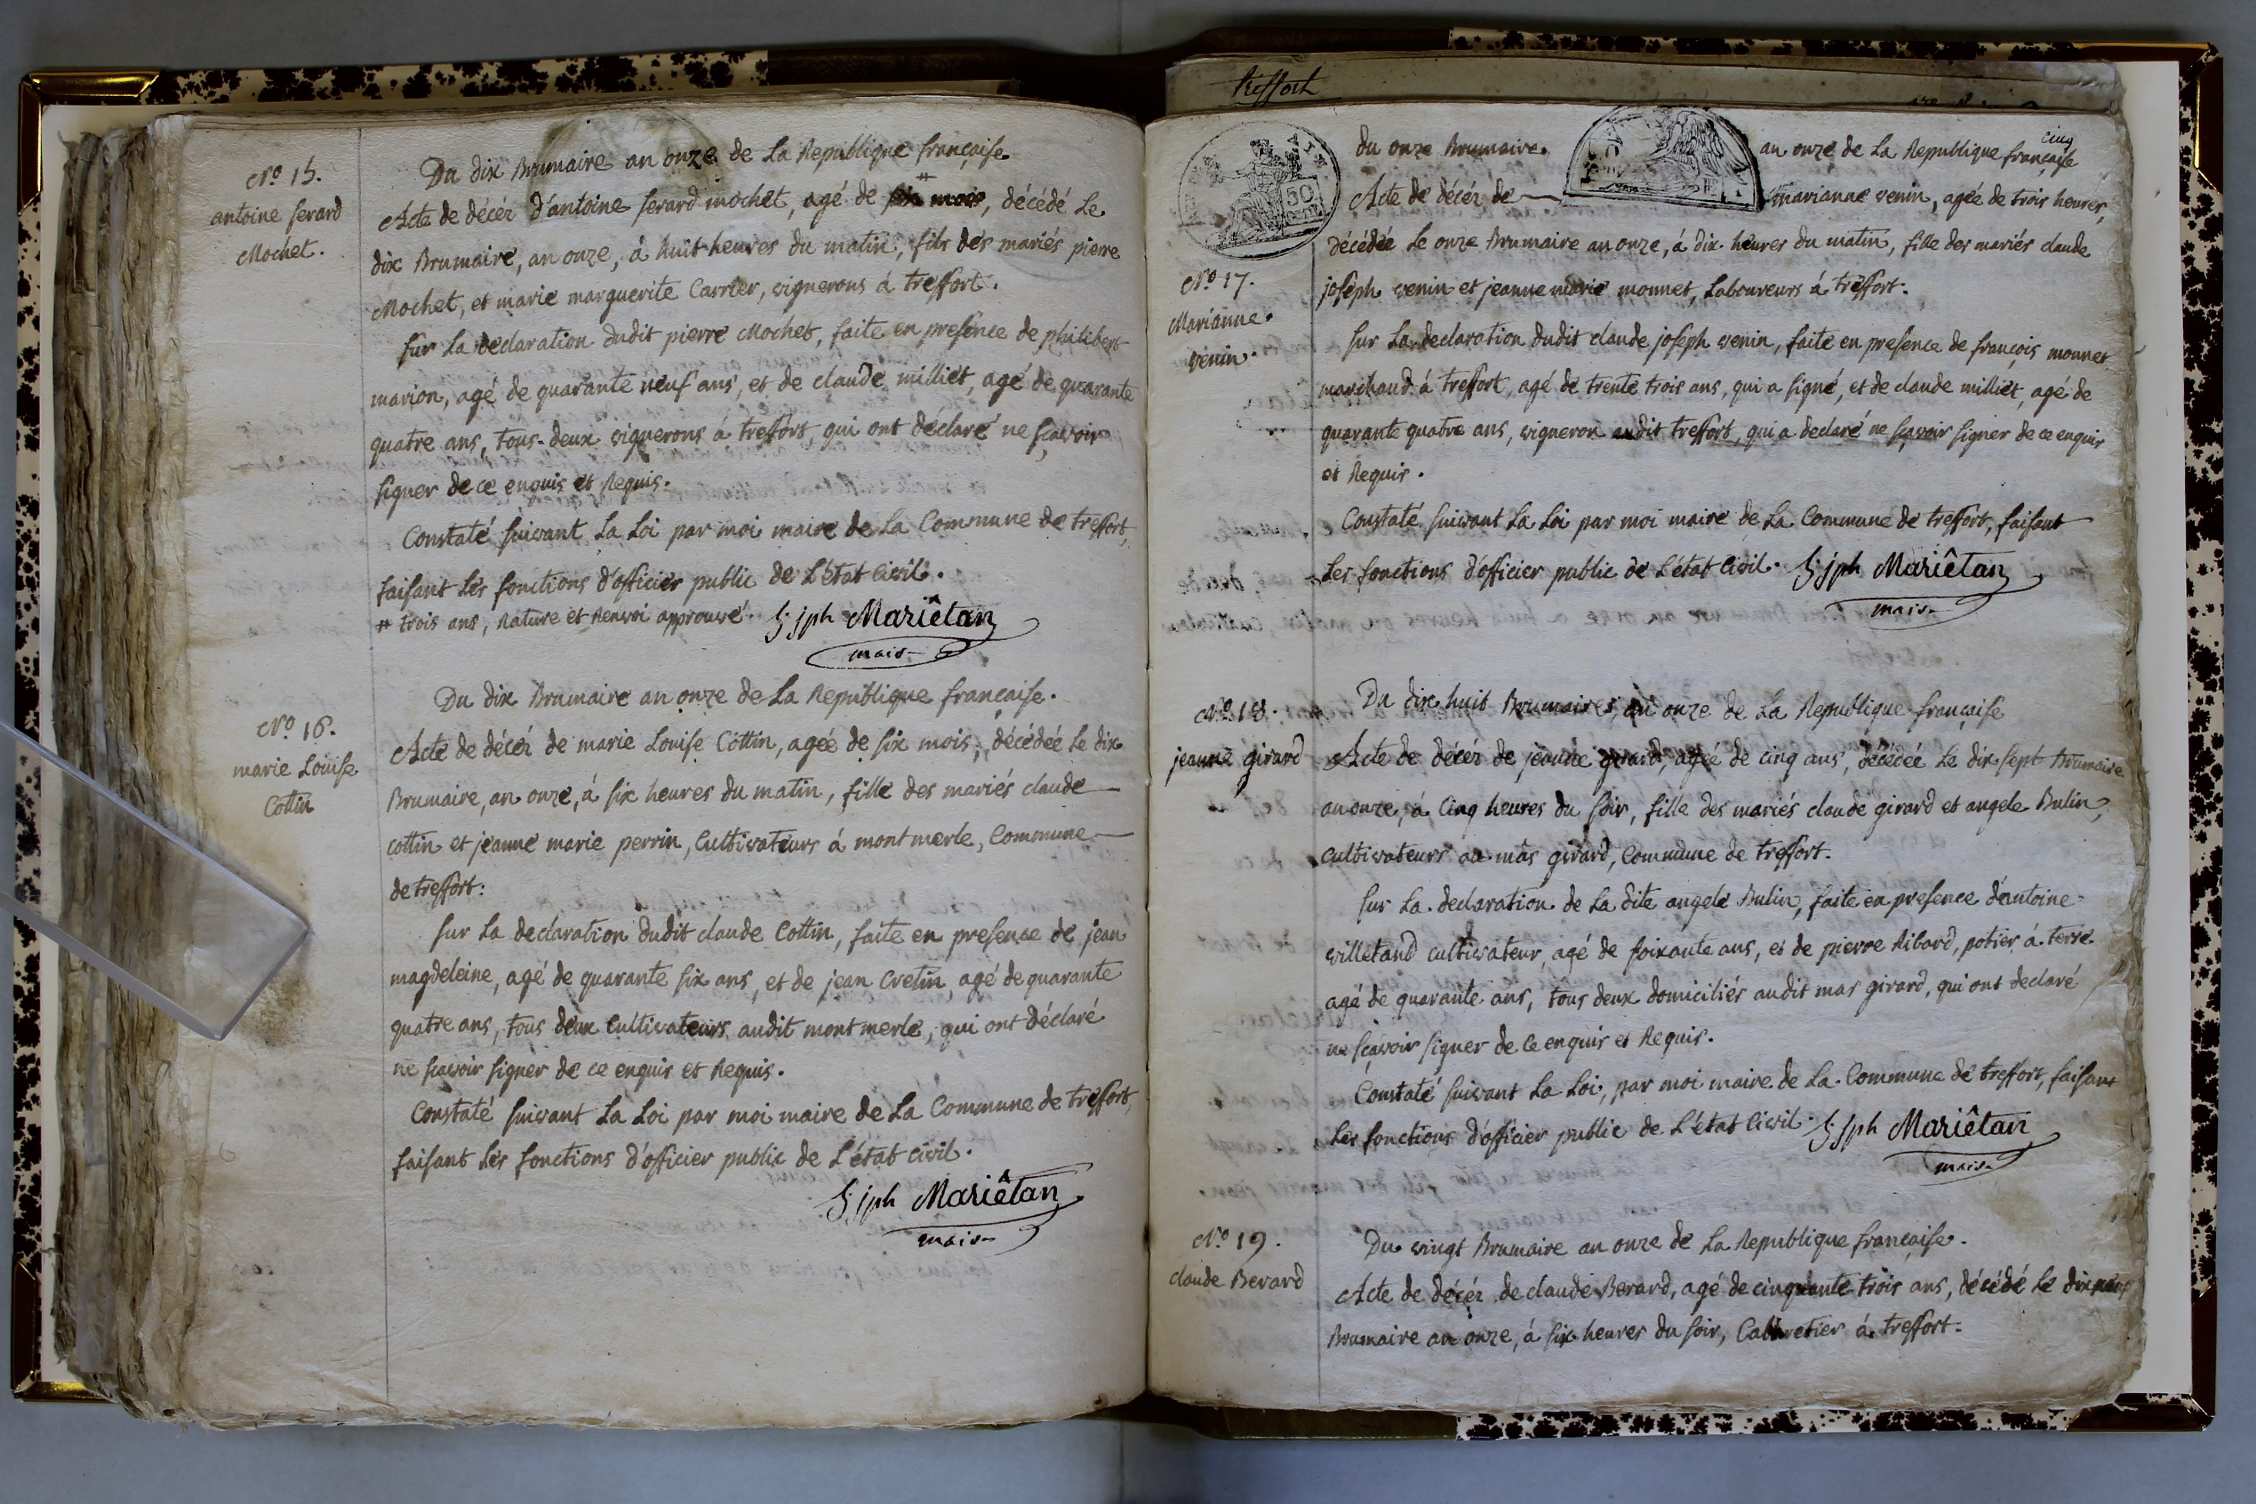 N.º 15.
antoine ferard
Mochet.
Du dix Brumaire an onze de La Republique française.
Acte de décéz d'antoine ferard mochet, agé de six mois #, décédé Le
dix Brumaire, an onze, á huit heures du matin, fils des mariés pierre
Mochet, et marie marguerite Carrier, vignerons á treffort.
sur La declaration dudit pierre Mochet, faite en presence de philibert
marion, agé de quarante neuf ans, et de claude milliet, agé de quarante
quatre ans, tous deux vignerons á treffort, qui ont déclaré ne sçavoir
signer de ce enquis et Requis.
Constaté suivant La Loi par moi maire de La Commune de treffort,
faisant Les fonctions d'officier public de L'état Civil.
# trois ans, Rature et Renvoi approuvé. jph Mariêtan
maire
N.º 16.
marie Louise
Cottin
Du dix Brumaire an onze de La Republique française.
Acte de décéz de marie Louise Cottin, agée de six mois, décédée Le dix
Brumaire, an onze, á six heures du matin, fille des mariés claude
cottin et jeanne marie perrin, Cultivateurs á mont merle, Commune
de treffort:
sur La declaration dudit claude Cottin, faite en presence de jean
magdeleine, agé de quarante six ans, et de jean Cretin, agé de quarante
quatre ans, tous deux Cultivateurs audit mont merle, qui ont déclaré
ne scavoir signer de ce enquis et Requis.
Constaté suivant La Loi par moi maire de La Commune de treffort,
faisant Les fonctions d'officier public de L'état civil.
jph Mariêtan
maire
treffort
cinq
du onze Brumaire. an onze de La Republique française
Acte de décéz de marianne venin, agée de trois heures,
Décédée Le onze Brumaire an onze, á dix heures du matin, fille des mariés claude
joseph venin et jeanne marie monnet, Laboureurs á treffort.
N.º 17.
Marianne.
venin.
sur La declaration dudit claude joseph venin, faite en presence de françois monnet
marchand á treffort, agé de trente trois ans, qui a signé, et de claude milliet, agé de
quarante quatre ans, vigneron audit treffort, qui a declaré ne sçavoir signer de ce enquis
et Requis.
Constaté suivant La Loi par moi maire de La Commune de treffort, faisant
Les fonctions d'officier public de L'état Civil. jph Mariêtan
maire
N.º 18.
jeanne girard
Du dix huit Brumaire, an onze de La Republique française
Acte de décéz de jeanne girard, agée de cinq ans, décédée Le dix sept Brumaire
an onze, á Cinq heures du soir, fille des mariés claude girard et angele Bulin,
cultivateurs au mas girard, Commune de treffort.
sur La declaration de La dite angele Bulin, faite en presence d'antoine
villetand cultivateur, agé de soixante ans, et de pierre Ribard, potier á terre
agé de quarante ans, tous deux domiciliés audit mas girard, qui ont declaré
ne sçavoir signer de Ce enquis et Requis.
Constaté suivant La Loi, par moi maire de La Commune de treffort, faisant
Les fonctions d'officier public de L'état Civil. jph Mariêtan
maire
N.º 19.
claude Berard
Du vingt Brumaire an onze de La Republique française.
Acte de décéz de claude Berard, agé de cinquante trois ans, décédé Le dix neuf
Brumaire an onze, á six heures du soir, Cabaretier á treffort.